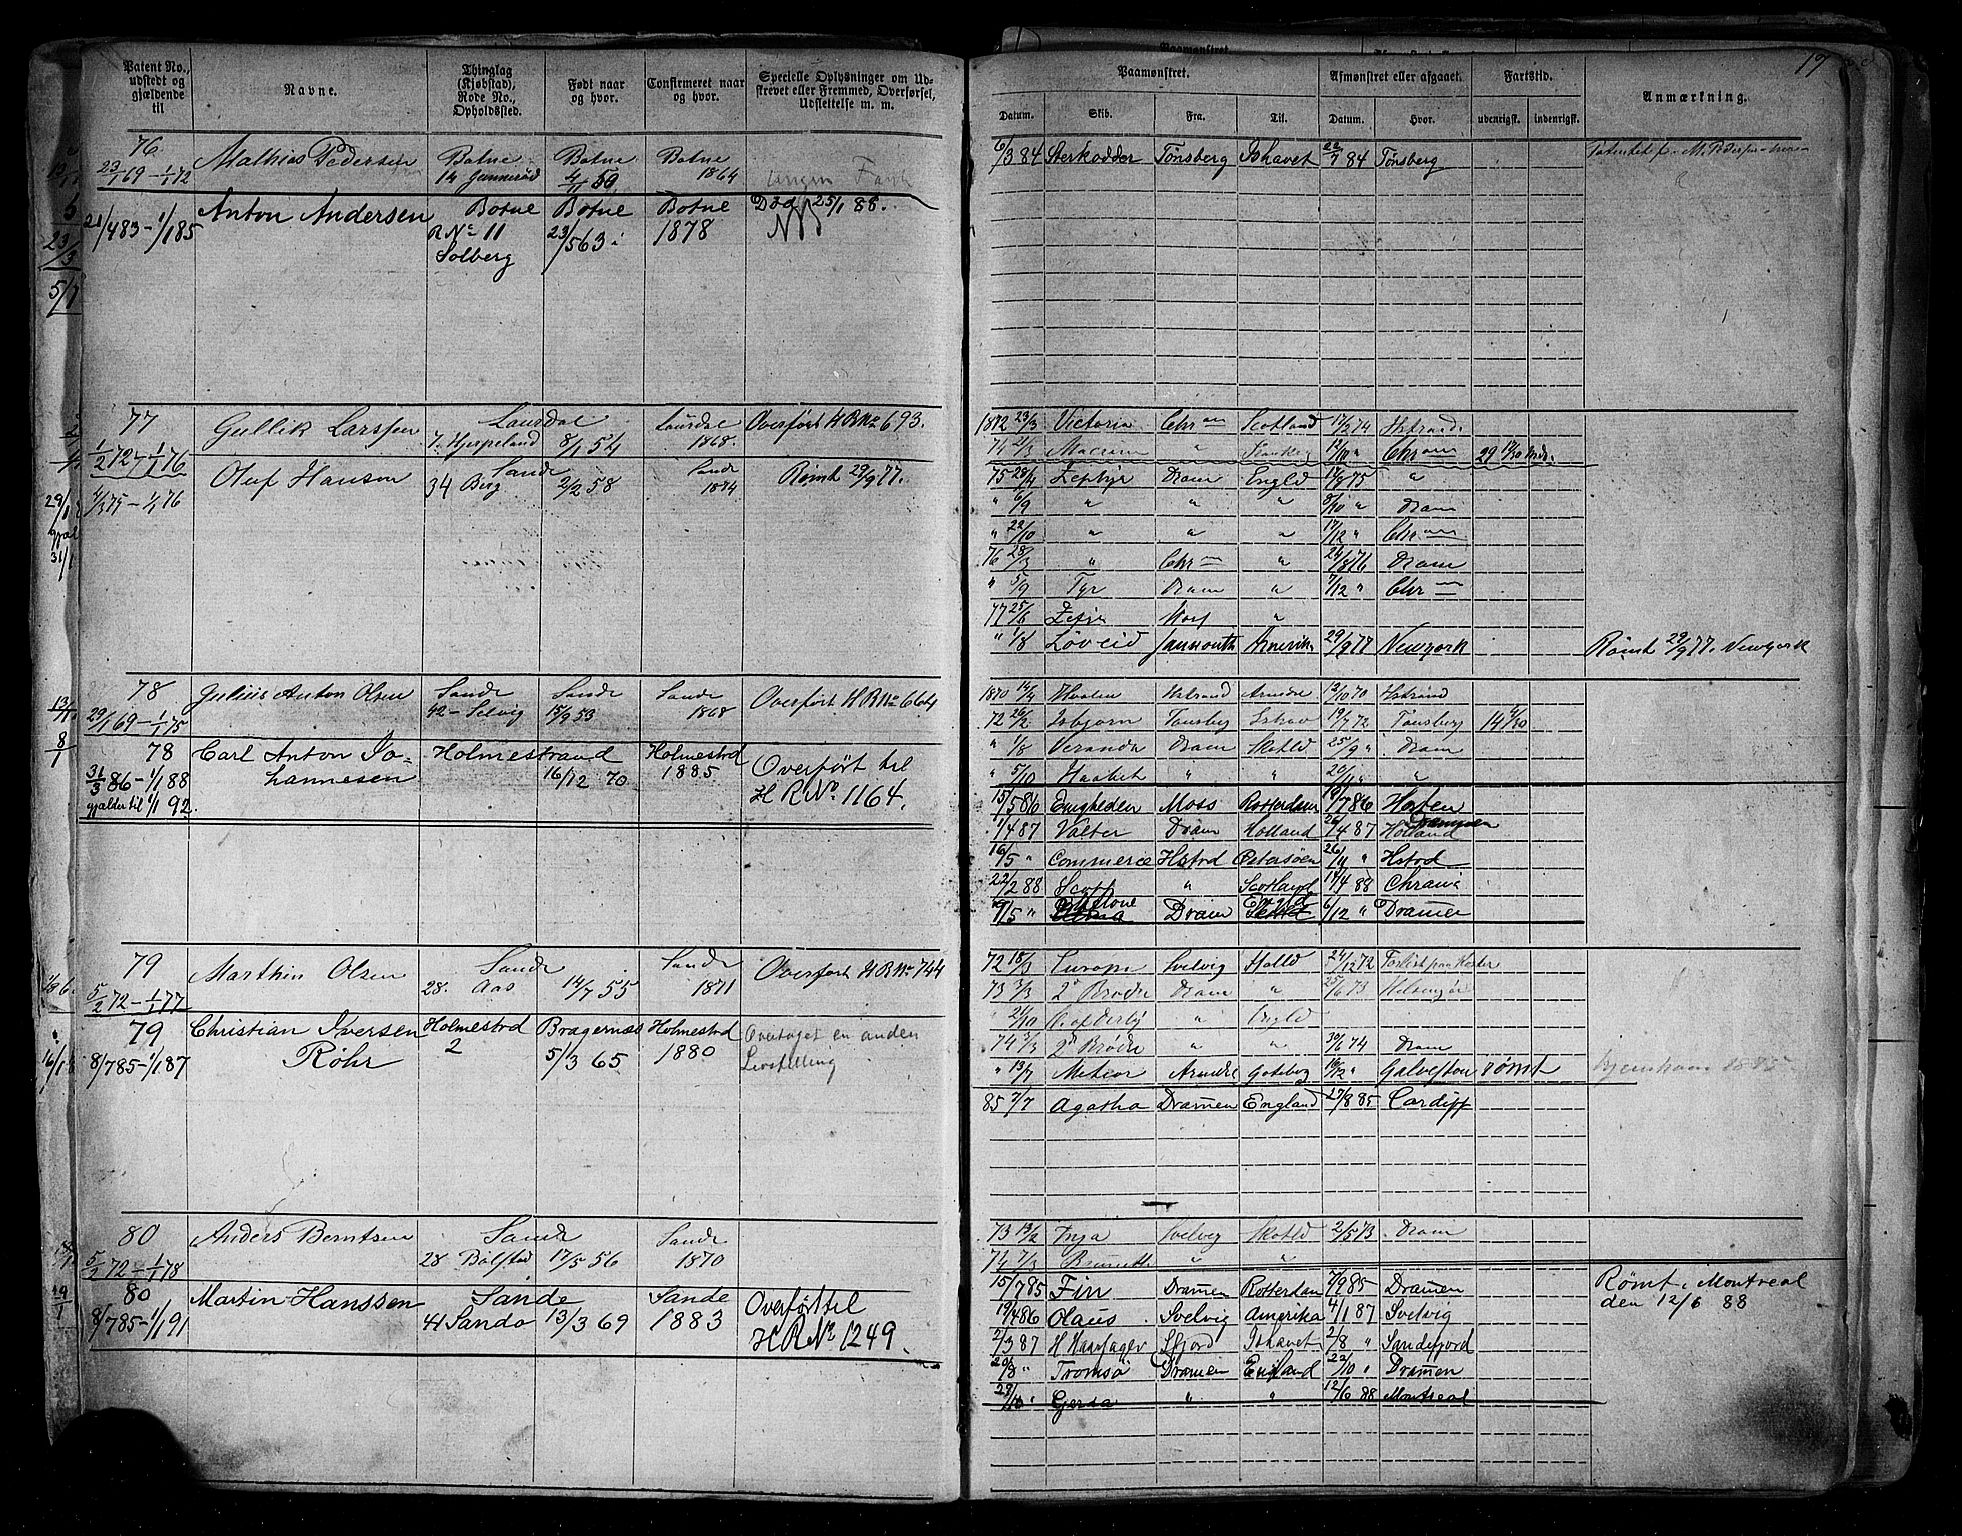 Patent No., udstedt og gjældende til
Navne.
Thinglag (Kjøbstad), Rode No., Opholdssted.
Født naar og hvor.
Confirmeret naar og hvor.
Specielle Oplysninger om Udskrevet eller Fremmed, Overførsel, Udslettelse m. m.
76
23/1 69 – 1/1 72
Mathias Pedersen
Botne
14 Gunnerød
Botne
4/11 50
Botne
1864
ingen Fart
21/4 83 – 1/1 85
Anton Andersen
Botne
R No 11
Solberg
Botne
23/5 63
Botne
1878
Død 25/1 88.
NB
77
1/2 72 – 1/1 76
Gullik Larssen
Laurdal
7. Hjerpeland
8/1 54
Laurdal
1868.
Overført H R No 693.
4/3 75 – 1/1 76
Oluf Hansen
Sande
34 Berg
2/2 58
Sande
1874
Rømt 29/9 77.
78
29/1 69 – 1/1 75
Julius Anton Olsen
Sande
42 – Selvig
Sande
15/9 53
Sande
1868
Overført H R No 664
78
31/3 86 – 1/1 88
gjælder til 1/1 92.
Carl Anton Jo-
hannesen
Holmestrand
16/12 70
Holmestrd
1885
Overført til
H R No. 1164.
79
5/2 72 – 1/1 77
Marthin Olsen
Sande
28. Aas
14/7 55
Sande
1871
Overført H R No 744
79
8/7 85 – 1/1 87
Christian Iversen
Røhr
Holmestrd
2
Bragernæs
5/3 65
Holmestrd
1880
Overtaget en anden
Livsstilling
80
5/2 72 – 1/1 78
Anders Berntsen
Sande
28 Bolstad
17/5 56
Sande
1870
80
8/7 85 – 1/1 91
Martin Hanssen
Sande
41 Sando
13/3 69
Sande
1883
Overført til
H R No. 1249.
17
Paamønstret.
Afmønstret eller afgaaet.
Fartstid.
Anmærkning.
Datum.
Skib.
Fra.
Til.
Datum.
Hvor.
udenrigsk.
indenrigsk.
6/3 84 Sterkodder Tønsberg Ishavet 22/7 84 Tønsberg
1872 23/3 Victoria Chr Scotland 17/3 74 Hstrand.
74 21/3 " 12/10 " Chr 29
75 28/4 Zephyr Dram Engld 17/8 75 "
" 6/9 " " " 8/10 " Dram
" 22/10 " " " 17/12 " Chr
76 28/3 " Chr " 24/8 76 Dram
" 5/9 Tyr Dram " 7/12 " Chr
77 25/6 "
" 1/8 Løveid Amerik. 29/9 77 Newyork Rømt 29/9 77. Newyork
1870 14/4 Haaben Hstrand 12/10 70 Hstrand
72 26/2 Isbjørn Tønsbg Ishav 19/7 72 Tønsberg
" 1/8 Veranda Dram Skotld 25/9 " Dram
" 5/10 Haabet " " 20/11 " "
15/5 86 Enigheden Moss Rotterdam 19/7 86 Horten
1/4 87 Valter Dram Holland 26/4 87 Holland Drammen
16/5 " Commerce Hstrd Østersøen 26/11 " Hstrd
22/2 88 " Scotland 17/4 88 Chrania
19/5 " Dram Engld 6/12 " Drammen
72 18/3 Europa Svelvig Holld 24/12 72
73 3/3 2 Brødre Dram " 23/6 73 Helsingør
" 21/10 " Engld
74 3/3 2 Brødre " " 30/6 74 Dram
" 13/7 Meteor Gotebg 16/12 " Galveston rømt
85 7/7 Agatha Drammen England 27/8 85 Cardiff
73 13/2 Inga Svelvig Skotld 2/5 73 Dram
74 7/3 " "
15/7 85 Fin Drammen Rotterdam 7/9 85 Drammen Rømt i Montreal
den 12/6 88
19/4 86 Olaus Svelvig Amerika 4/1 87 Svelvig
2/3 87 H Haarfager Sfjord Ishavet 2/8 " Sandefjord
20/8 " Tromsø Drammen England 22/10 " Drammen
28/10 " Gerda " " 12/6 88 Montreal